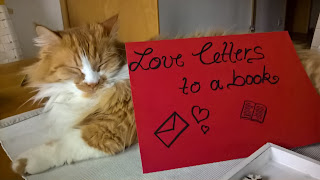 Love letters
to a book